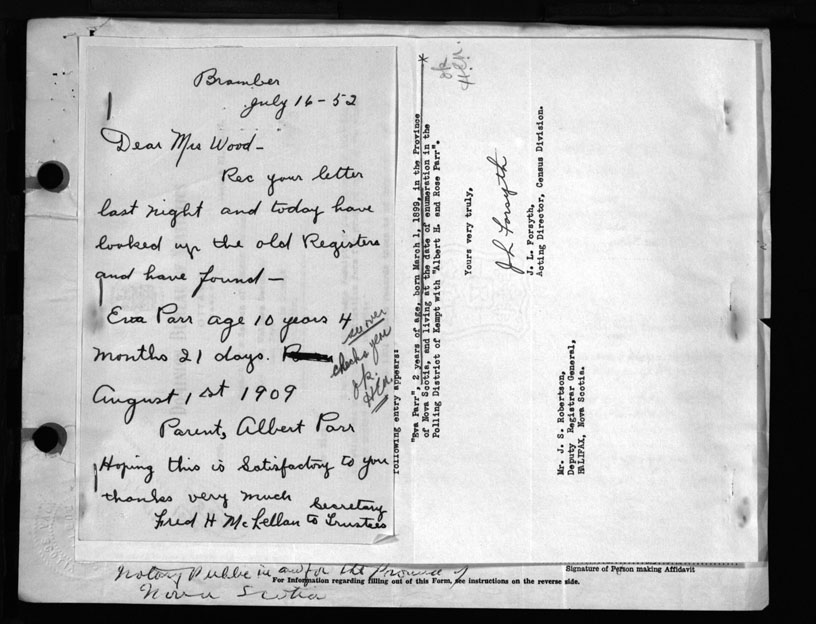 Bramber
July 16-52
Dear Mrs Wood-
Rec your letter
last night and today have
looked up the old Registers
and have found-
Eva Parr age 10 years 4
months 21 days.
August 1st 1909
Parent, Albert Parr
Hoping this is Satisfactory to you
thanks very much
Secretary
Fred H McLellan to Trustees
see over
checks you
ok.
HER.
following entry appears:
ok
HER.
"Eva Parr", 2 years of age, born March 1, 1899, in the Province
of Nova Scotia, and living at the date of enumeration in the
Polling District of Kempt with "Albert H. and Rose Parr".
Yours very truly,
J L Forsyth
J. L. Forsyth,
Acting Director, Census Division.
Mr. J. S. Robertson,
Deputy Registrar General,
HALIFAX, Nova Scotia.
Signature of Person making Affidavit
Notary Public in and for the Province of
For Information regarding filling out of this Form, see instructions on the reverse side.
Nova Scotia